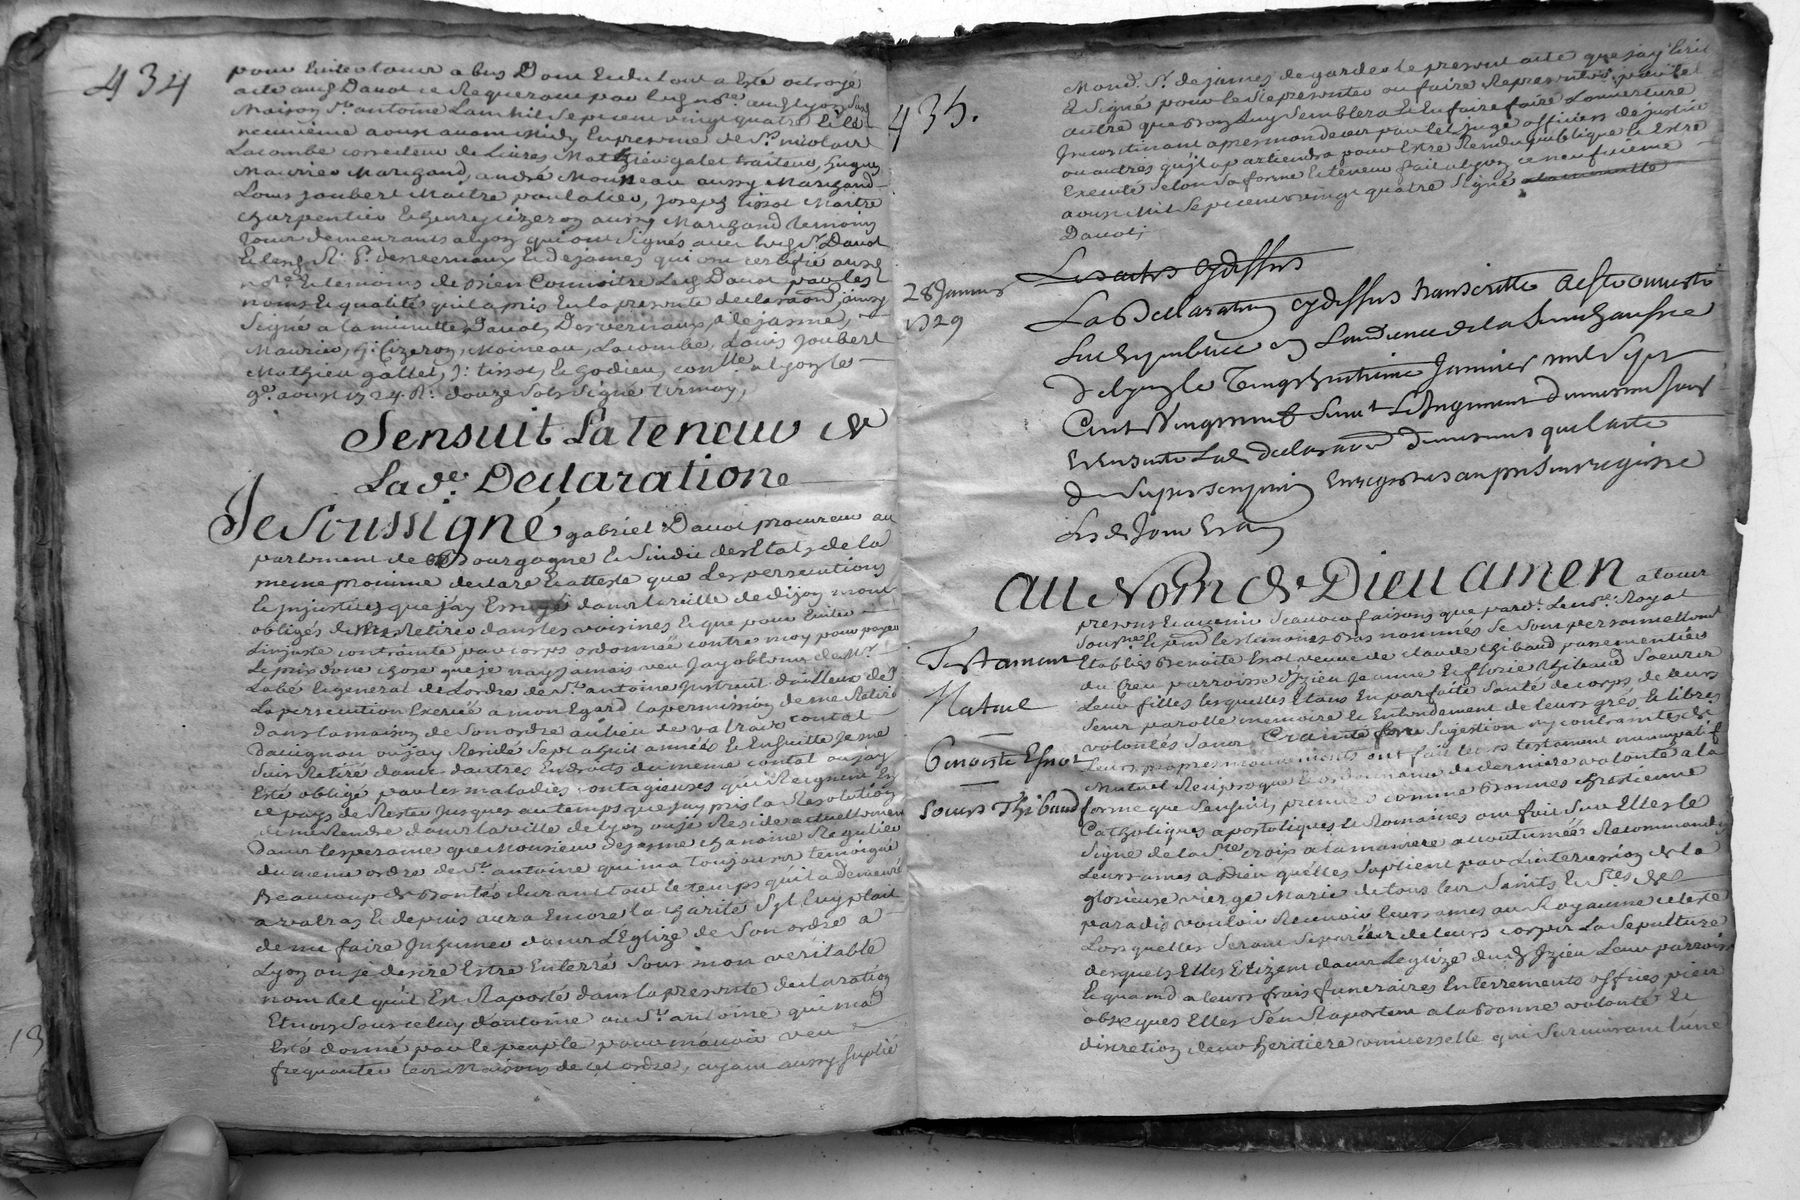 434
pour Eviter tour abus Dont Endu tout a Esté octroyé
acte aud Davot ce Requerant par led no.re aud lyon dans
Maison St. antoine Lan Mil Sept cent vingt quatre Et le
neuvième aoust avant Midy En presence de Sr. nicolas
Lacombe correcteur de Livres Mathieu galet traiteur, hugues
Maurier Marchand, andré Moineau aussy Marchand
Louis joubert Maitre poulalier, joseph tissot Maitre
charpentier Et henry cizeron aussy Marchand temoins
tous demeurants a lyon qui ont signés avec led Sr. Davot
Et lesd Rd. P. desvernaux Et dejames qui ont certifié ausd
no.re Et temoins de bien Connoitre Led Davot par les
noms Et qualités quil a pris En la presente declaraon ainsy
Signé a la minutte, Davot, Desvernaux, dejasme,
Maurier, h. Cizeron, Moineau, Lacombe, Louis Joubert
Mathieu gallet, j. tissot, Et hodieu, con.lle a lyon le
9e. aoust 1724. R. douze sols Signé tirmoy,
Sensuit La Teneur de
Lad.e. Declaration
Je Soussigné gabriel Davot procureur au
parlement de Bourgogne Et Sindic des Etats de la
meme province declare Et atteste que Les persecutions
Et Injustices que j'ay Essuyé dans la ville de dijon mont
obligés de me Retirer dans les voisines Et que pour Eviter
Linjuste contrainte par corps ordonnée contre moy pour payer
Le prix d'une chose que je nay jamais veu Jay obtenu de Mr.
Labé Et general de Lordre de St. antoine Instruit d'ailleurs de
La persecution Exercée a mon Egard la permission de me Retirer
dans la maison de Son ordre au lieu de valras contat
Davignon ou jay Residé Sept a huit années Et Ensuitte Je me
Suis Retiré dans d'autres Endroits du meme contat ou jay
Esté obligé par les maladies contagieuses qui Regnoient En
ce pays de Rester Jusques au temps que jay pris la Resolution
de me Rendre dans la ville de lyon ou je Reside actuellement
Dans lesperance que Monsieur dejasme chanoine Regulier
du meme ordre de St. antoine qui ma toujours temoigné
Beaucoup de Bontés durant tout le temps quil a demeuré
a valras Et depuis aura Encore la charité Sil luy plait
de me faire Inhumer dans L'Eglize de Son ordre a
Lyon ou je desire Estre Enterré Sous mon veritable
nom tel quil Est Raporté dans la presente declaration
Et non Sous celuy d'antoine ou St. antoine qui ma
Esté donné par le peuple pour mavoir veu
frequanter les Maisons de cet ordre, ayant aussy suplié
435.
Mond. Sr. dejames de garder le present acte que jay Ecrit
Et Signé pour le Representer ou faire Representer par tel
autre que bon luy Semblera Et En faire faire Louverture
Incontinant apres mon deces par tels juge officiers de justice
ou autres quil apartiendra pour Estre Rendu publique Et Estre
Executé Selon Sa forme Et teneur fait a lyon ce neufvieme
aoust Mil Sept cent vingt quatre Signé a la minutte
Davot;
Les actes cy dessus
28 Janvier
1729
La Declaration cy dessus transcritte a esté ouverte
Lue Et publiee en Laudience de la Senechaussée
De lyon le Vingt huitieme Janvier mil Sept
Cent Vingt neuf Suivt Le Jugement dumesme jour
Et Ensuite Lad declaration Demesmes que l'acte
De Superscription Enregistrés au present registre
Led Jour Et an
AU Nom De DIEU AMEN a tous
presens Et avenir Scavoir faisons que pard. Le no.re Royal
Sousne. Et pnt les temoins bas nommés Se Sont personnellemt
Etablies Benoite Esnot veuve de claude thibaud passementier
du Creu parroisse d'Izieu Jeanne Et florie thibaud Soeurs
Leur filles lesquelles Etans En parfaite Santé de corps de leurs
Sens parolle memoire Et Entendement de leurs grés, Et libres
volontés Sans Crainte force Sugestion ny contraintes de
Leurs propres mouvements ont fait leurs testament nuncupatif
Mutuel Reciproque Et ordonnance de derniere volonté a la
forme que Sensuit, premier comme bonnes chrestienne
Catholiques apostoliques Et Romaines ont fait Sur Elles le
Signe de la Ste. croix a la maniere accoutumée Recommandé
Leurs ames a Dieu quelles Suplient par Lintercession de la
glorieuse vierge Marie de tous les Saints Et Stes. de
paradis vouloir Recevoir leurs ames au Royaume celeste
Lors quelles Seront Separées de leurs corps La Sepulture
desquels Elles Elizent dans Leglize dud Izieu Leur parroisse
Et quand a leurs frais funeraires Enterrements offices pieux
obseques Elles S'en Raportent a la bonne volonté Et
discretion de leur heritiere universelle qui Survivra Lune
Testament
Mutuel
Benoiste Esnot
Soeurs Thibaud